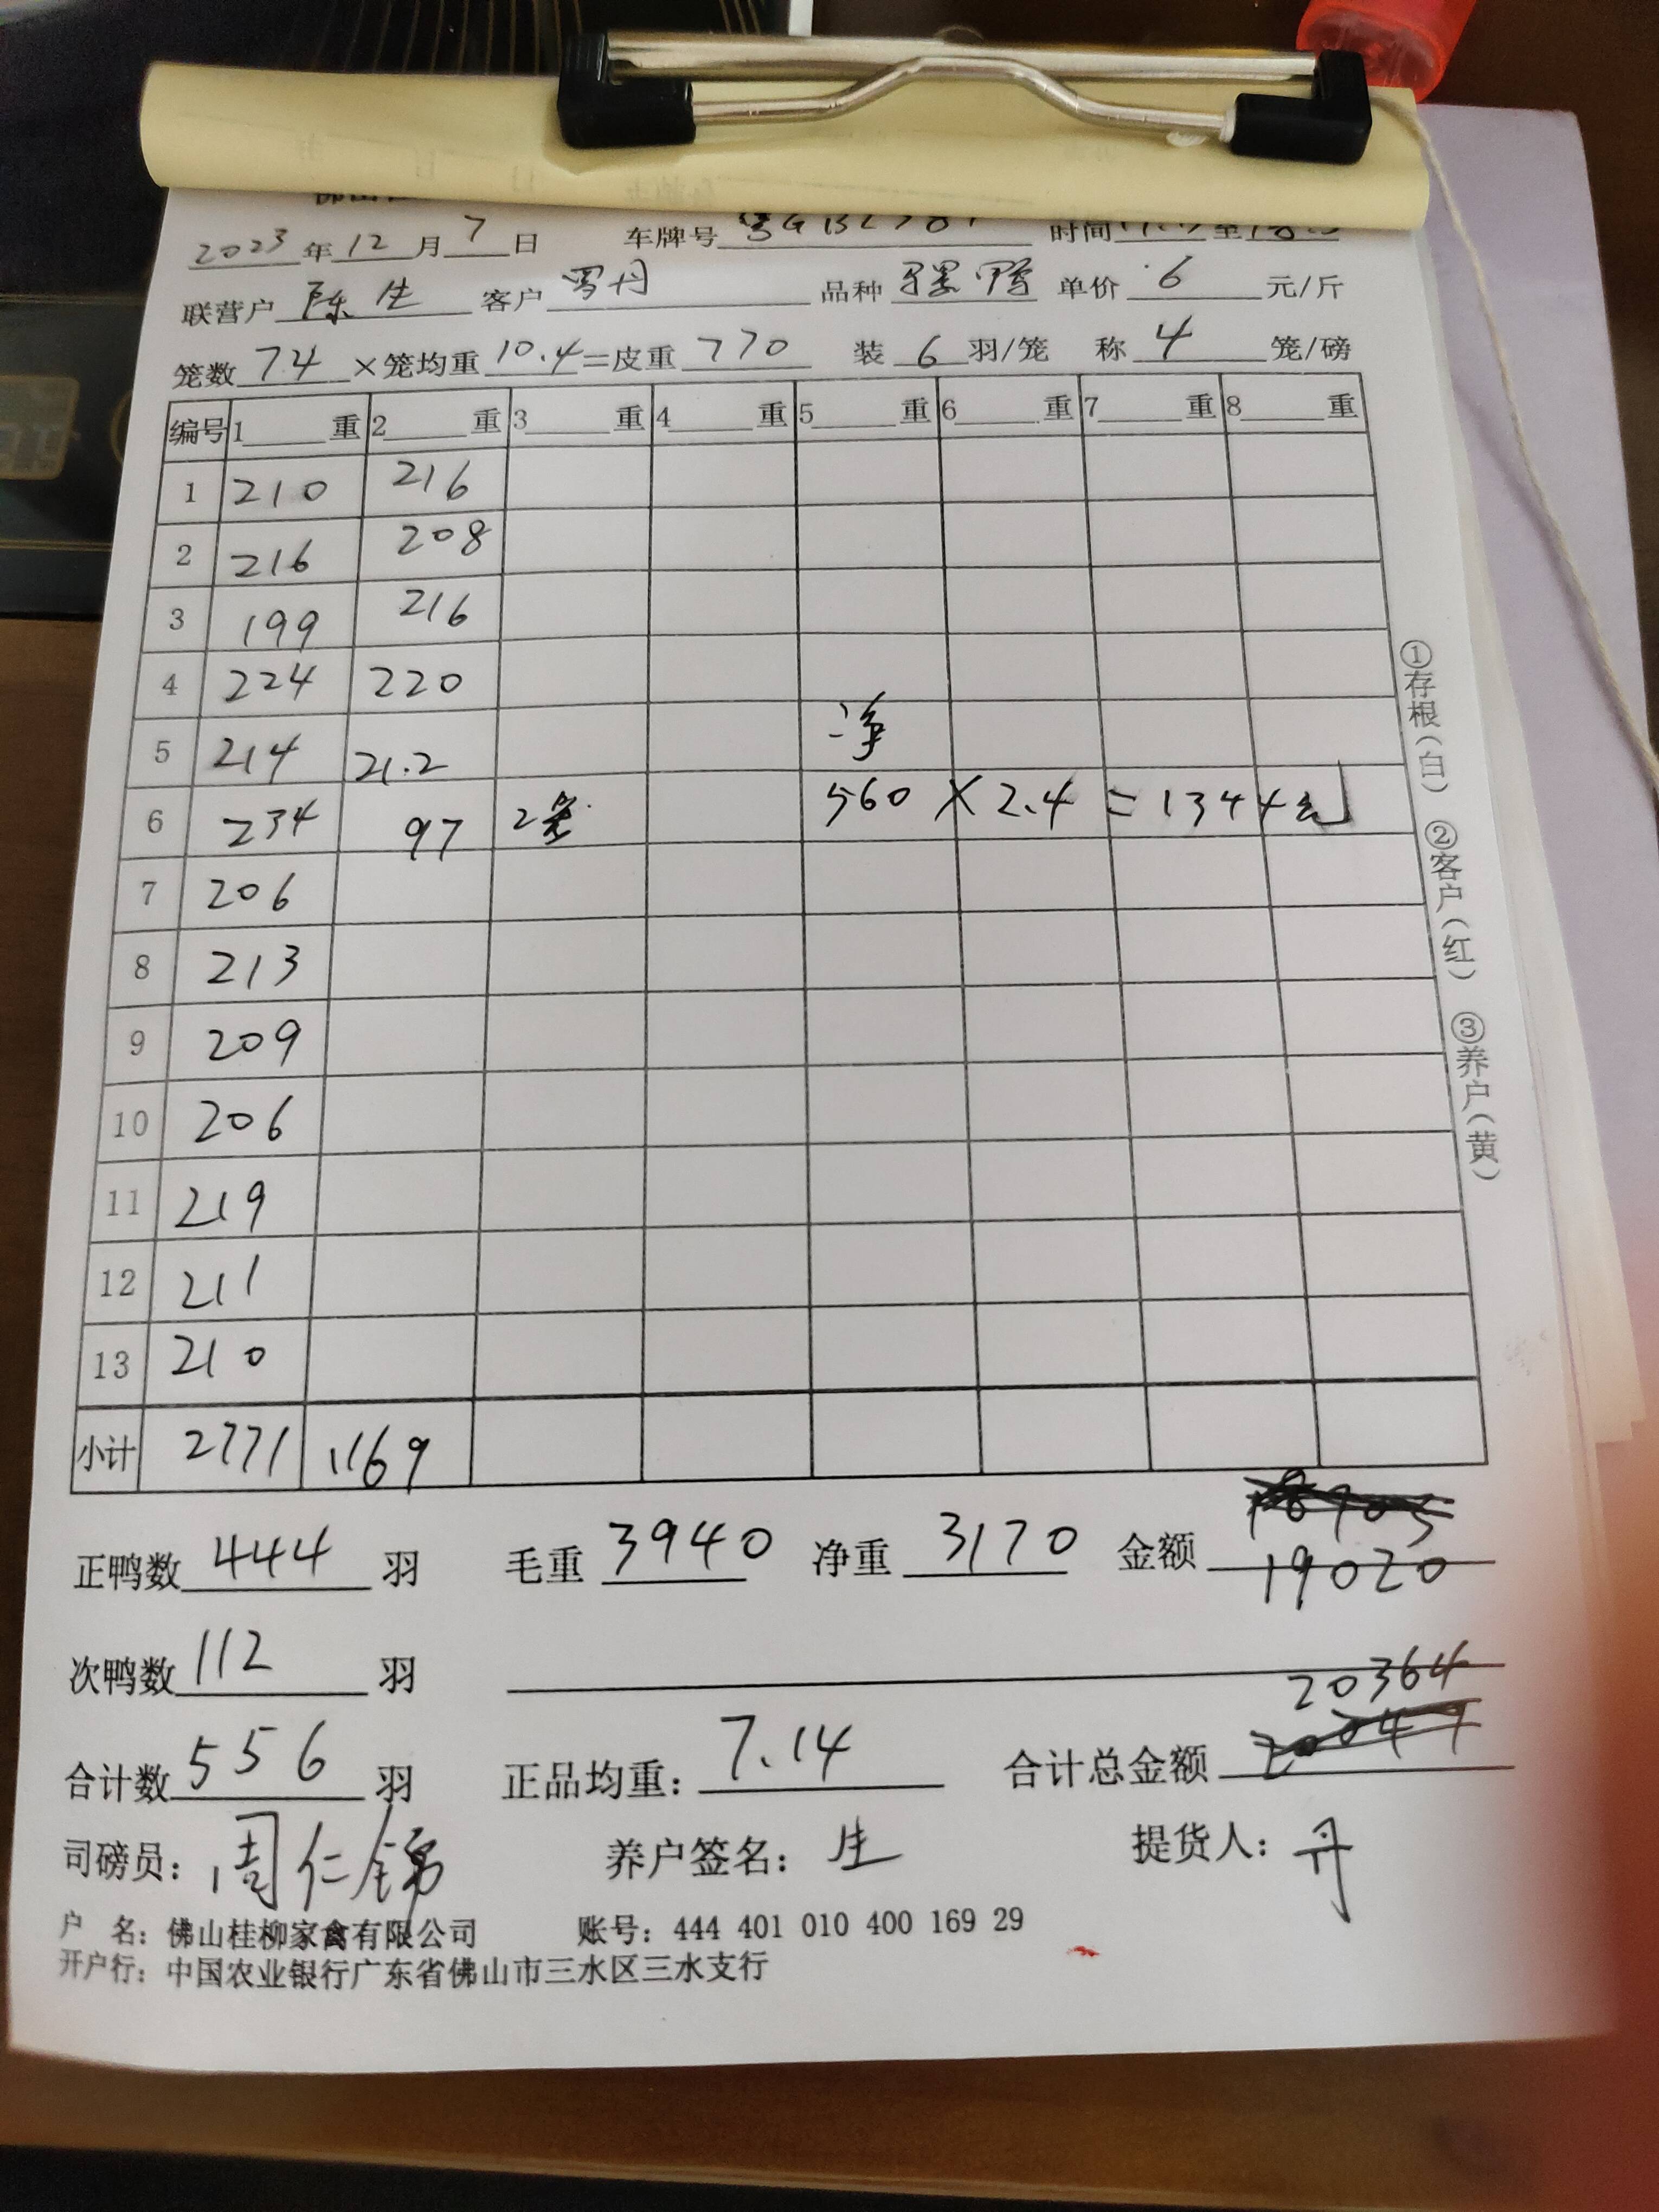 2023 年 12 月 7 日 车牌号 时间 至
联营户 陈生 客户 罗丹 品种 单价 6 元/斤
笼数 74 ×笼均重 10.4 =皮重 770 装 6 羽/笼 称 4 笼/磅
编号 1 重 2 重 3 重 4 重 5 重 6 重 7 重 8 重
1 210 216
2 216 208
3 199 216
4 224 220
5 214 21.2 净
6 234 97 2笼 560 × 2.4 = 1344元
7 206
8 213
9 209
10 206
11 219
12 211
13 210
小计 2771 1169
正鸭数 444 羽 毛重 3940 净重 3170 金额 19020
次鸭数 112 羽
20364
合计数 556 羽 正品均重: 7.14 合计总金额
司磅员: 周仁锦 养户签名: 生 提货人: 丹
户 名: 佛山桂柳家禽有限公司 账号: 444 401 010 400 169 29
开户行: 中国农业银行广东省佛山市三水区三水支行
①存根(白) ②客户(红) ③养户(黄)